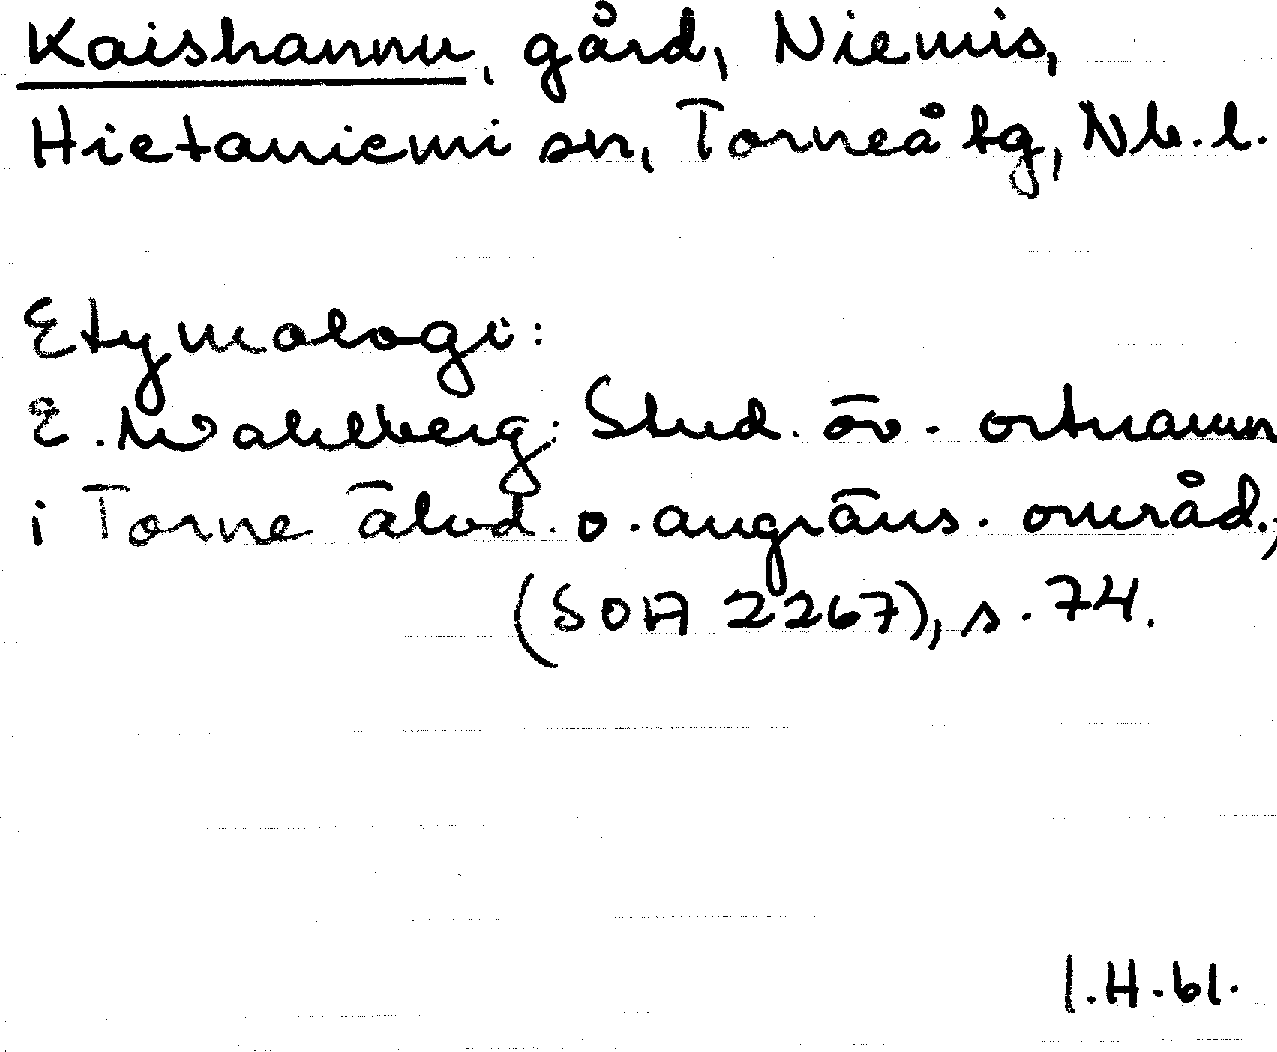 Kaishannu, gård, Niemis,
Hietaniemi sn, Torneå tg, Nb. l.
Etymologi:
E. Wahlberg: Stud. öv. ortnamn
i Torne älvd. o. angräns. områd.,
(SOA 2267), s. 74.
I.H.61.